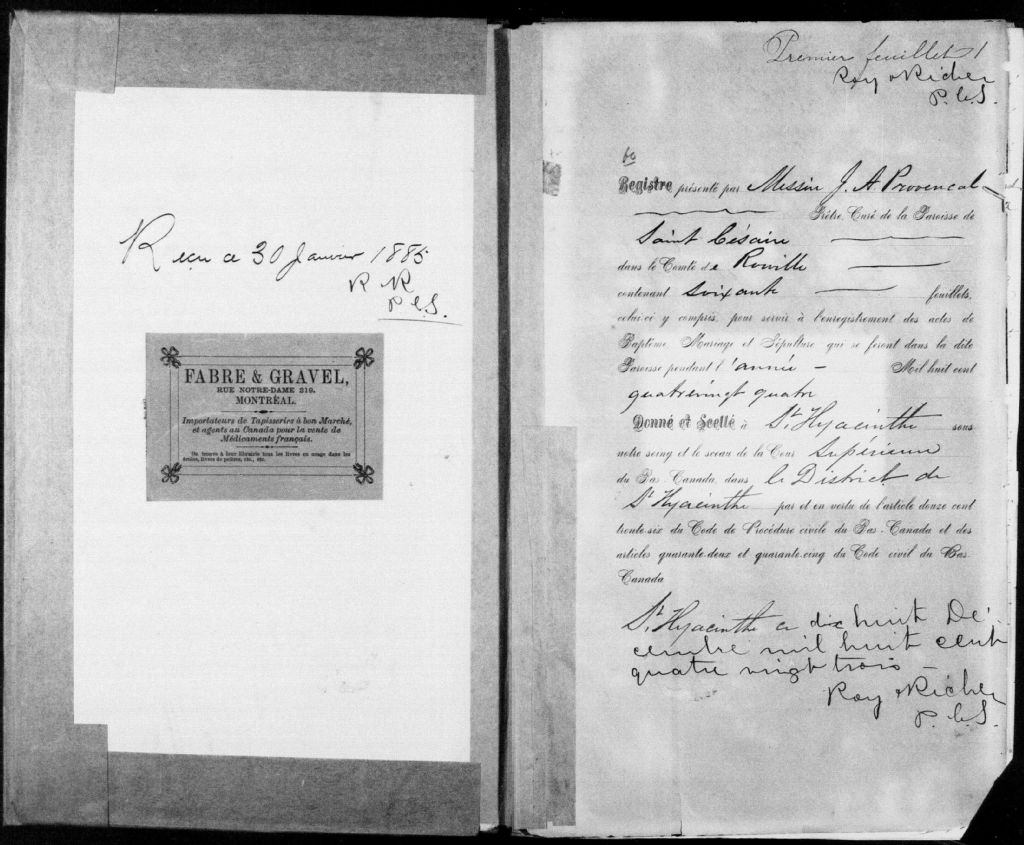 Reçu ce 30 Janvier 1885
R & R
P.C.S.
FABRE & GRAVEL,
RUE NOTRE-DAME 219.
MONTRÉAL.
Importateurs de Tapisseries à bon Marché,
et agents au Canada pour la vente de
Médicaments français.
On trouve à leur librairie tous les livres en usage dans les
écoles, livres de prières, etc., etc.
Premier feuillet 1
Roy & Richer
P.C.S.
60
Registre présenté par Messire J. A Provencal
Prêtre, Curé de la Paroisse de
Saint Césaire
dans le Comté de Rouville
contenant soixante feuillets,
celui-ci y compris, pour servir à l'enregistrement des actes de
Baptême, Mariage et Sépulture qui se feront dans la dite
Paroisse pendant l'année – Mil huit cent
quatrevingt quatre
Donné et Scellé à St. Hyacinthe sous
notre seing et le sceau de la Cour Supérieure
du Bas-Canada, dans le District de
St Hyacinthe par et en vertu de l'article douze cent
trente-six du Code de Procédure civile du Bas-Canada et des
articles quarante-deux et quarante-cinq du Code civil du Bas-
Canada
St. Hyacinthe ce dix huit Dé-
cembre mil huit cent
quatre vingt trois –
Roy & Richer
P.C.S.